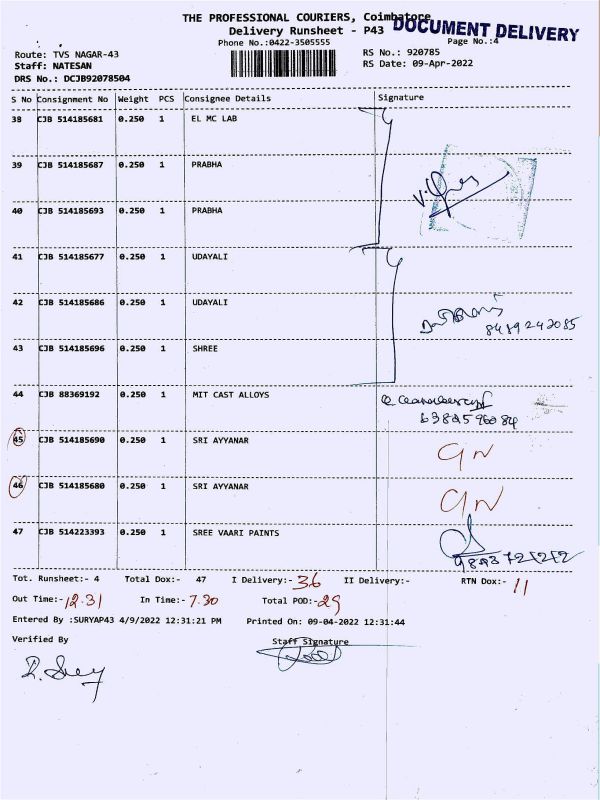 THE PROFESSIONAL COURIERS, Coimbatore
DOCUMENT DELIVERY
Delivery Runsheet - P43
Phone No.:0422-3505555
Page No.:4
Route: TVS NAGAR-43
RS No.: 920785
Staff: NATESAN
RS Date: 09-Apr-2022
DRS No.: DCJB92078504
S No Consignment No Weight PCS Consignee Details Signature
38 CJB 514185681 0.250 1 EL MC LAB
39 CJB 514185687 0.250 1 PRABHA
40 CJB 514185693 0.250 1 PRABHA
41 CJB 514185677 0.250 1 UDAYALI
42 CJB 514185686 0.250 1 UDAYALI
8489242085
43 CJB 514185696 0.250 1 SHREE
44 CJB 88369192 0.250 1 MIT CAST ALLOYS
6382596084
45 CJB 514185690 0.250 1 SRI AYYANAR
46 CJB 514185680 0.250 1 SRI AYYANAR
47 CJB 514223393 0.250 1 SREE VAARI PAINTS
Tot. Runsheet:- 4 Total Dox:- 47 I Delivery:- 36 II Delivery:- RTN Dox:- 11
Out Time:- 12.31 In Time:- 7.30 Total POD:- 29
Entered By :SURYAP43 4/9/2022 12:31:21 PM Printed On: 09-04-2022 12:31:44
Verified By Staff Signature